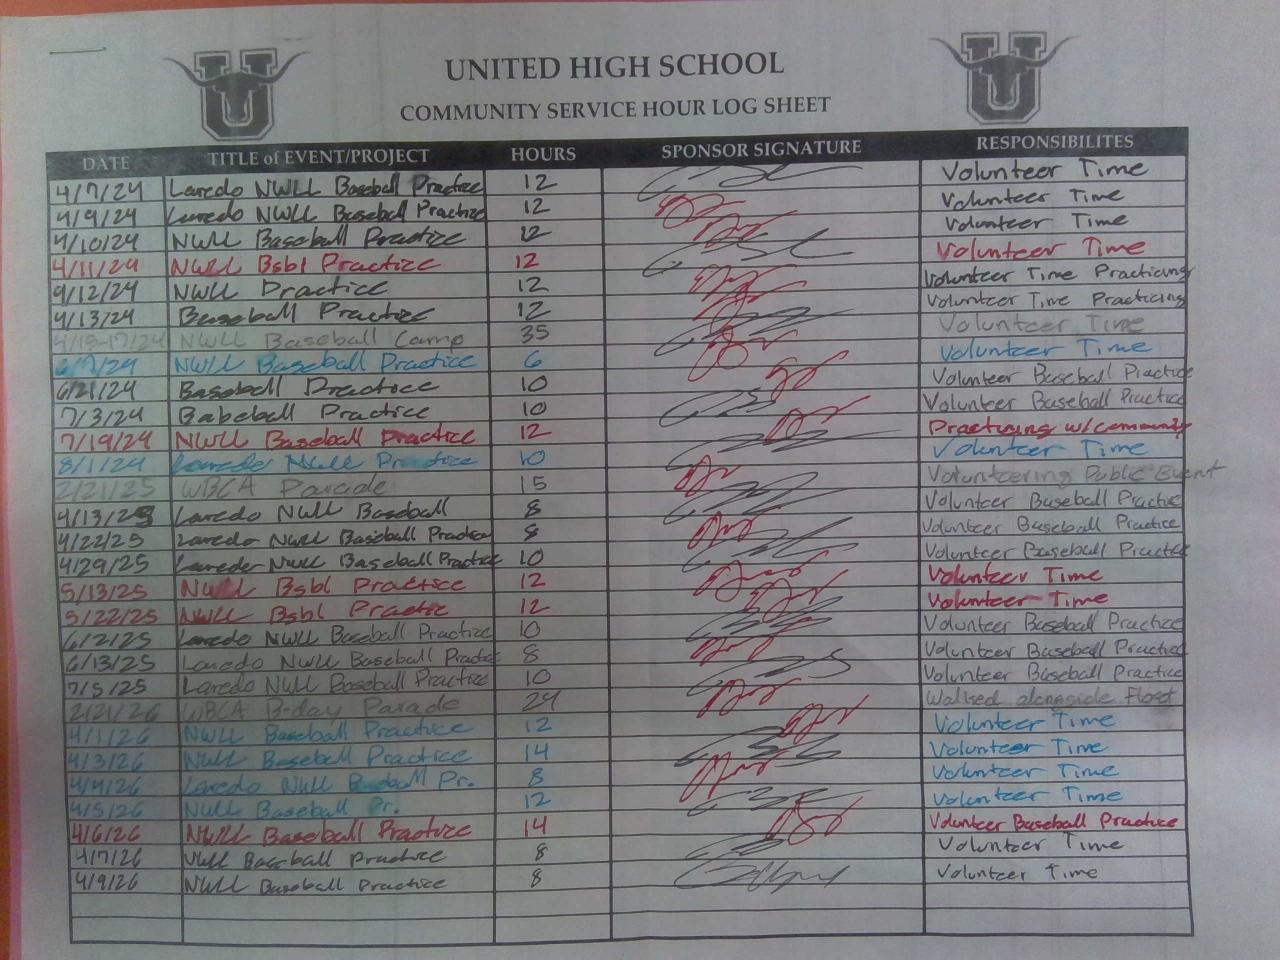 UNITED HIGH SCHOOL
COMMUNITY SERVICE HOUR LOG SHEET
DATE TITLE of EVENT/PROJECT HOURS SPONSOR SIGNATURE RESPONSIBILITES
4/7/24 Laredo NWLL Baseball Practice 12 Volunteer Time
4/9/24 Laredo NWLL Baseball Practice 12 Volunteer Time
4/10/24 NWLL Baseball Practice 12 Volunteer Time
4/11/24 NWLL Bsbl Practice 12 Volunteer Time
9/12/24 NWLL Practice 12 Volunteer Time Practicing
4/13/24 Baseball Practice 12 Volunteer Time Practicing
NWLL Baseball Camp 35 Volunteer Time
NWLL Baseball Practice 6 Volunteer Time
6/21/24 Baseball Practice 10 Volunteer Baseball Practice
7/3/24 Babeball Practice 10 Volunteer Baseball Practice
7/19/24 NWLL Baseball Practice 12 Practicing w/community
8/1/24 Laredo NWLL Practice 10 Volunteer Time
2/21/25 WBCA Parade 15 Volunteering Public Event
4/13/25 Laredo NWLL Baseball 8 Volunteer Baseball Practice
4/22/25 Laredo NWLL Baseball Practice 8 Volunteer Baseball Practice
4/29/25 Laredo NWLL Baseball Practice 10 Volunteer Baseball Practice
5/13/25 NWLL Bsbl Practice 12 Volunteer Time
5/22/25 NWLL Bsbl Practic 12 Volunteer Time
6/2/25 Laredo NWLL Baseball Practice 10 Volunteer Baseball Practice
6/13/25 Laredo NWLL Baseball Practice 8 Volunteer Baseball Practice
7/5/25 Laredo NWLL Baseball Practice 10 Volunteer Baseball Practice
2/21/26 WBCA B-day Parade 24 Walked alongside Float
4/1/26 NWLL Baseball Practice 12 Volunteer Time
4/3/26 NWLL Baseball Practice 14 Volunteer Time
4/4/26 Laredo NWLL Baseball Pr. 8 Volunteer Time
4/5/26 NWLL Baseball Pr. 12 Volunteer Time
4/6/26 NWLL Baseball Practice 14 Volunteer Baseball Practice
4/7/26 NWLL Baseball Practice 8 Volunteer Time
4/9/26 NWLL Baseball Practice 8 Volunteer Time